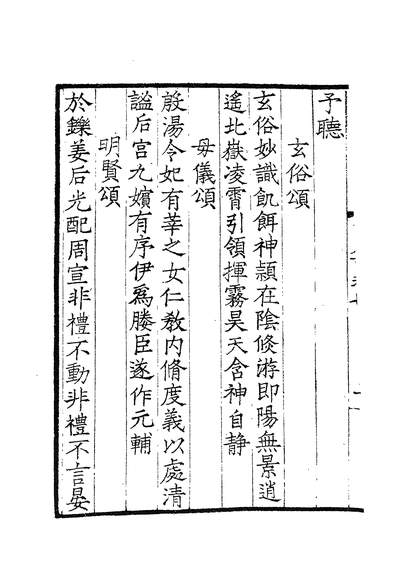 予聽
玄俗頌
玄俗妙識飢餌神頴在陰倐逰即陽無景逍
遙北嶽凌霄引領揮霧昊天含神自静
母儀頌
殷湯令妃有莘之女仁教内脩度義以處清
謐后宫九嬪有序伊爲媵臣遂作元輔
明賢頌
於鑠姜后光配周宣非禮不動非禮不言晏